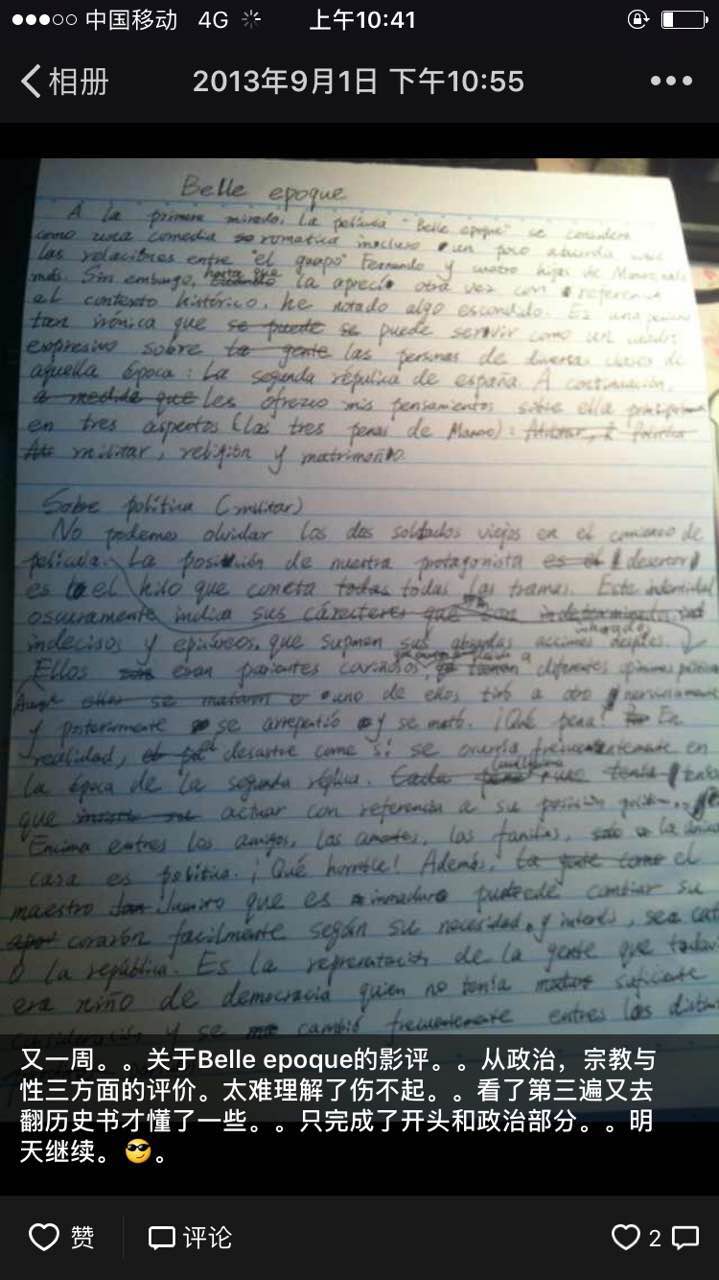 中国移动 4G 上午10:41
相册 2013年9月1日 下午10:55
Belle epoque
A la primera mirada, la película "Belle epoque" se considera
como una comedia romatica incluso un poco aburrida
las relaciones entre "el guapo" Fernando y cuatro hijas de Manolo,
más. Sin embargo, hasta que la otra vez con referencia
al contexto histórico, he notado algo escondido. Es una
tan irónica que se puede se puede servir como un
expresivo sobre la gente las personas de diversas clases de
aquella época: La segunda républica de españa. A continuación,
a medida que les ofrezco mis pensamientos sobre ella
en tres aspectos (las tres penas de Manolo):
militar, religión y matrimonio
Sobre política (militar)
No podemos olvidar los dos soldados viejos en el comienzo de
película. La posición de nuestra protagonista es el desertor
es el hilo que conecta todas todas las tramas. Esta identidad
oscuramente indica sus cárecteres que son
indecisos y que supnen sus absurdas acciones
Ellos eran parientes cariñosos, diferentes opiniones
uno de ellos tiró a otro nerviosamente
y posteriormente se arrepentió y se mató. ¡Qué pena! En
realidad, el desastre como sí se ocurría frecuentemente en
la época de la segunda Cada tenía
que actuar con referencia a su posición
Encima entres los amigos, los amantes, las familias, la única
casa es política. ¡Qué horrible! Además, la gente como el
maestro que es inmaduro puede cambiar su
corazón facilmente según su necesidad y interés, sea
o la república. Es la representación de la gente que
era niño de democracia quien no tenía suficiente
y se cambió frecuentemente entres las
又一周。。关于Belle epoque的影评。。从政治，宗教与
性三方面的评价。太难理解了伤不起。。看了第三遍又去
翻历史书才懂了一些。。只完成了开头和政治部分。。明
天继续。😎。
赞 评论 2